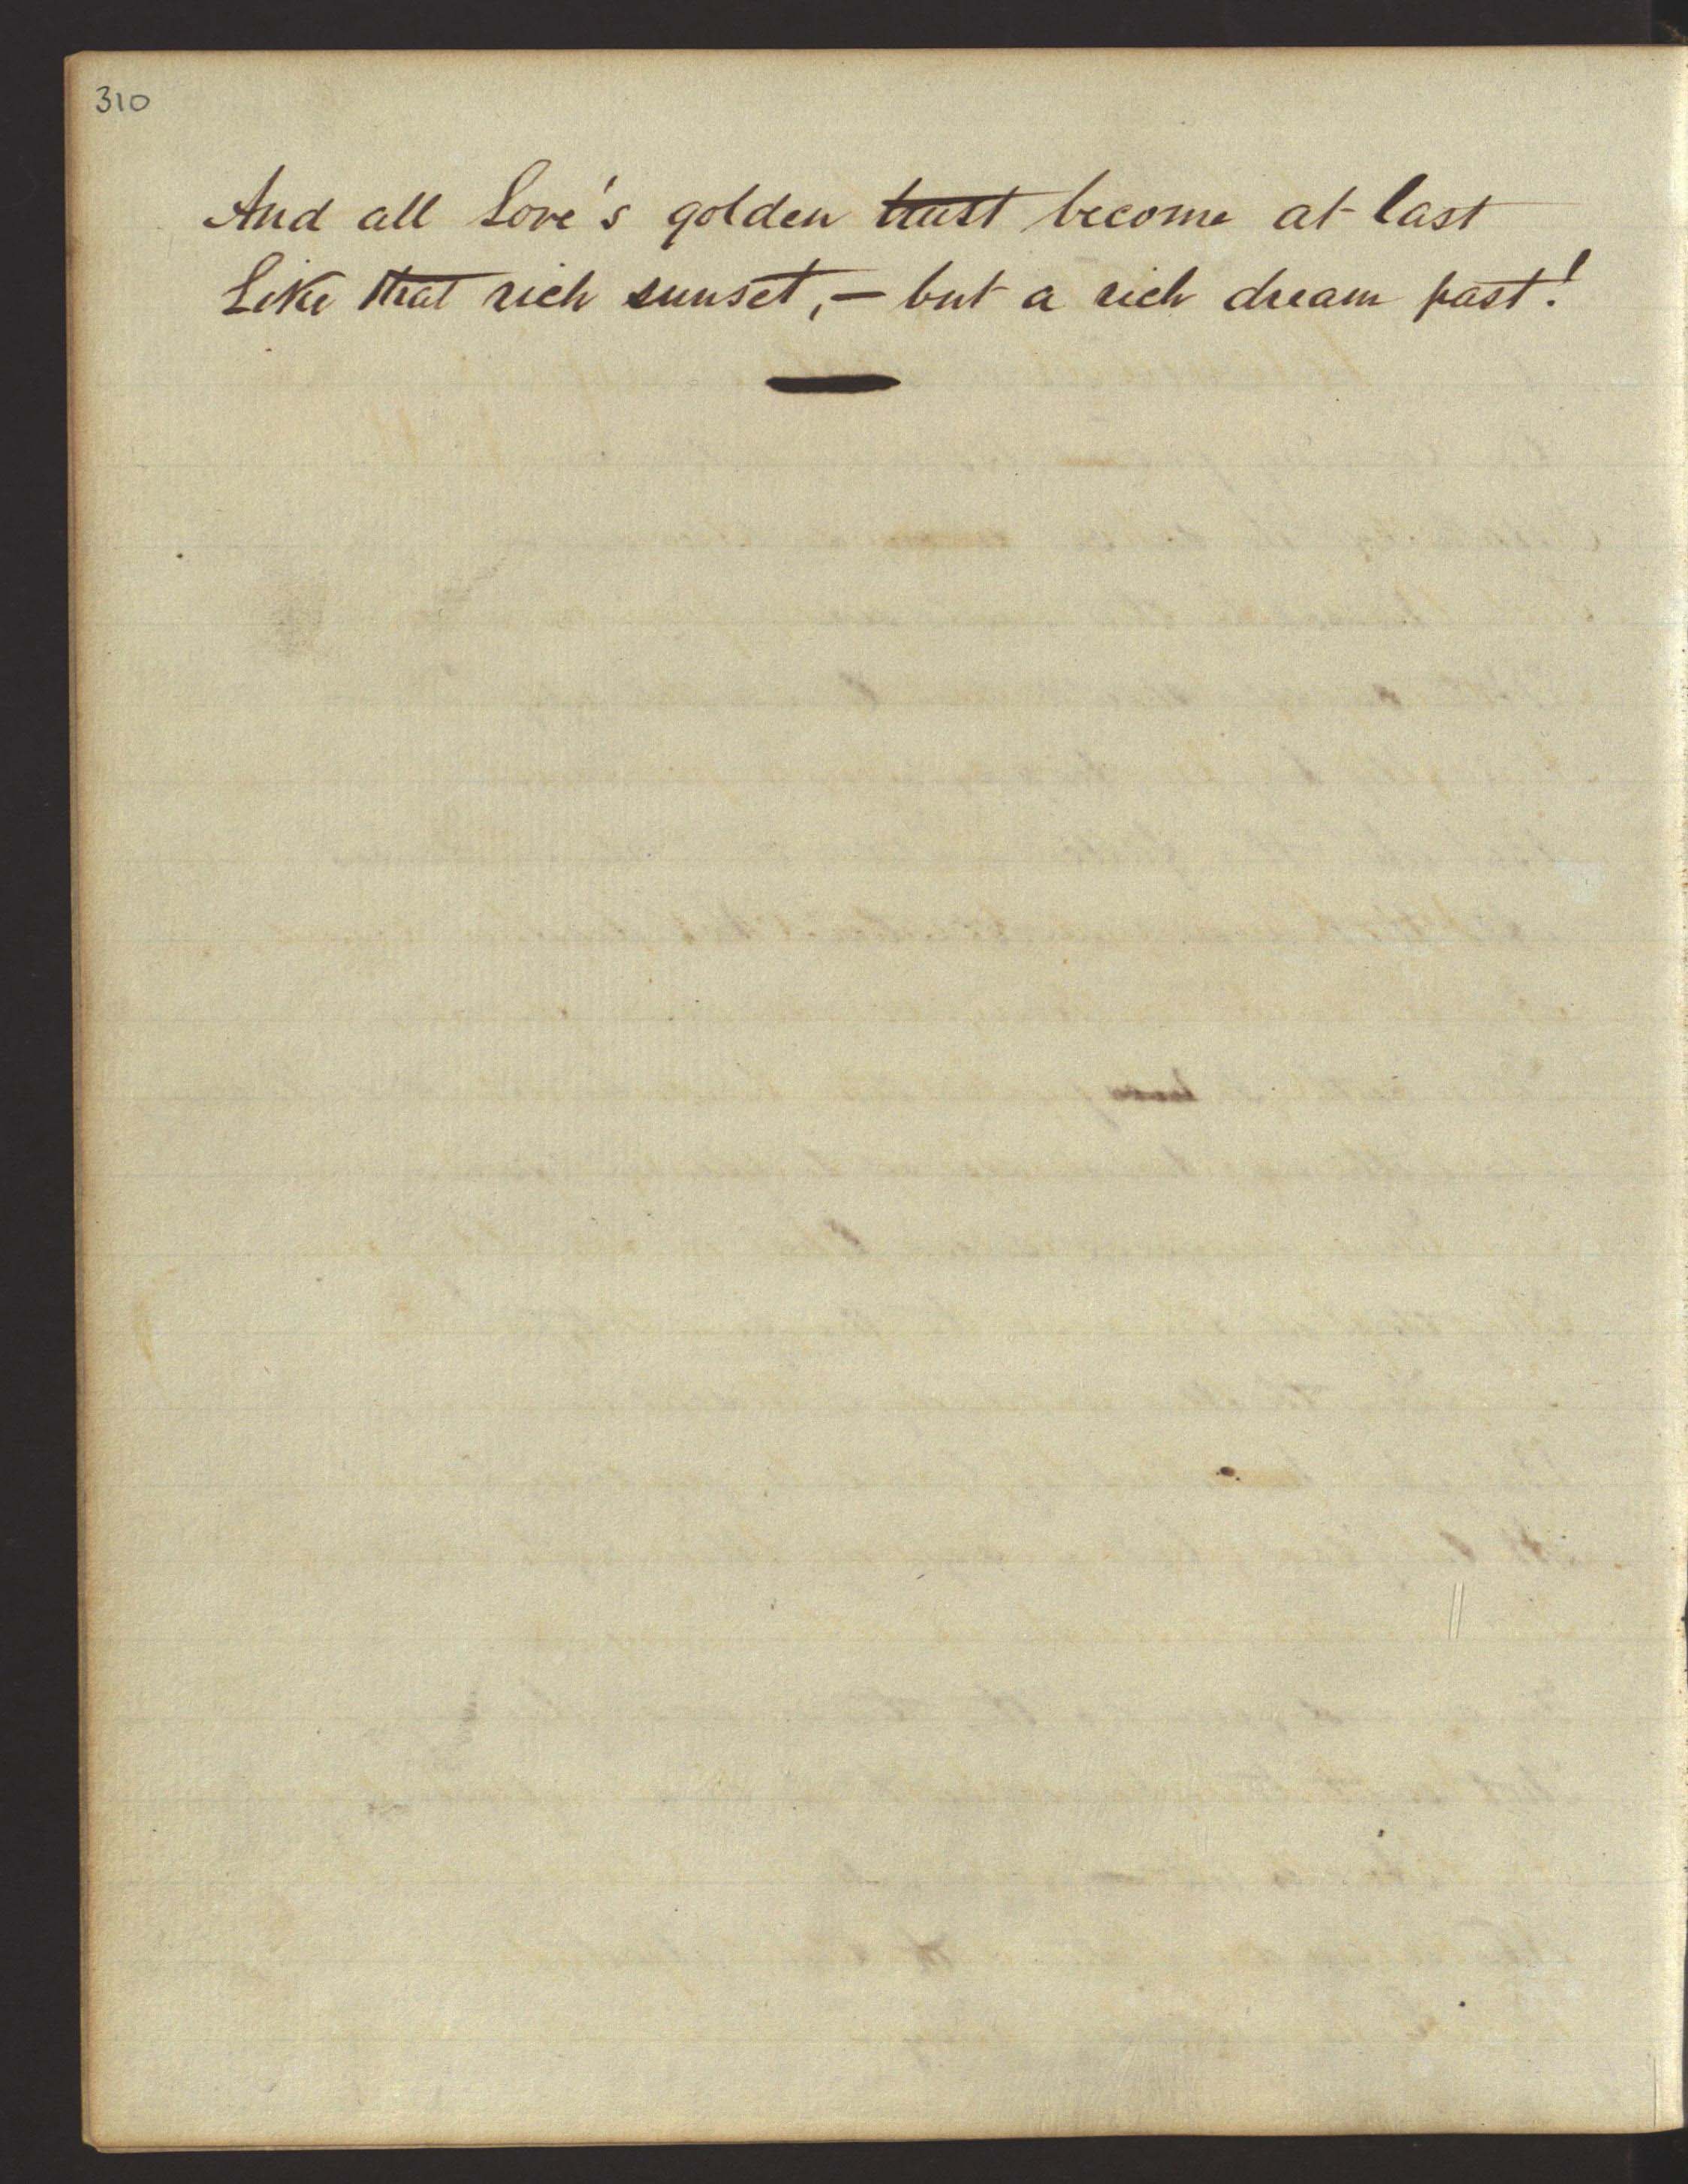 310
And all Love's golden trust become at last
Like that rich sunset, — but a rich dream past!